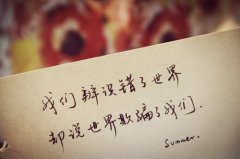 我们辨误错了世界
却说世界欺骗了我们.
Summer.